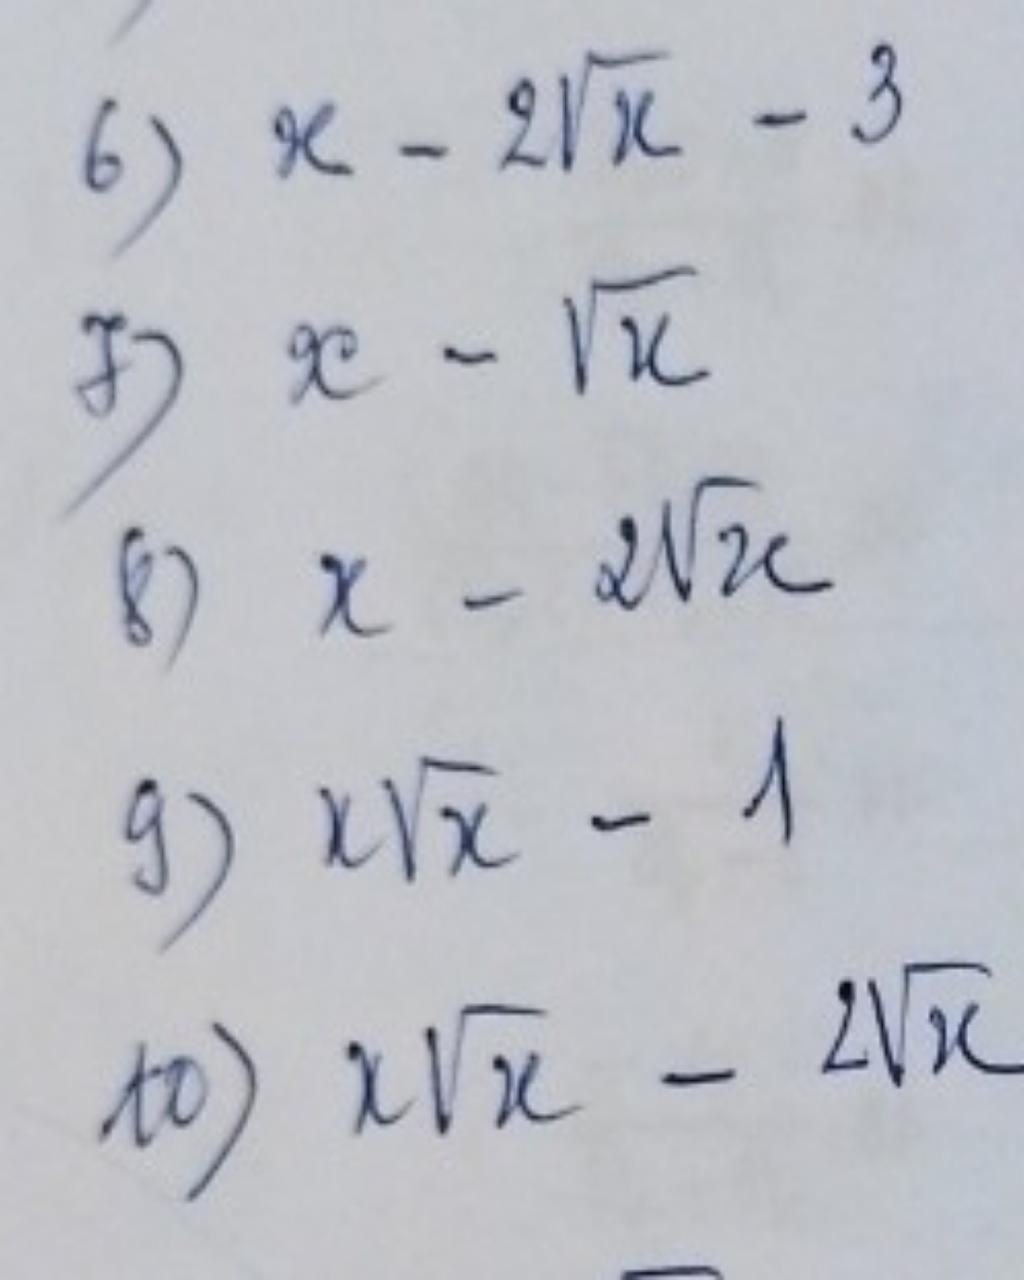 6) x - 2√x - 3
7) x - √x
8) x - 2√x
9) x√x - 1
10) x√x - 2√x